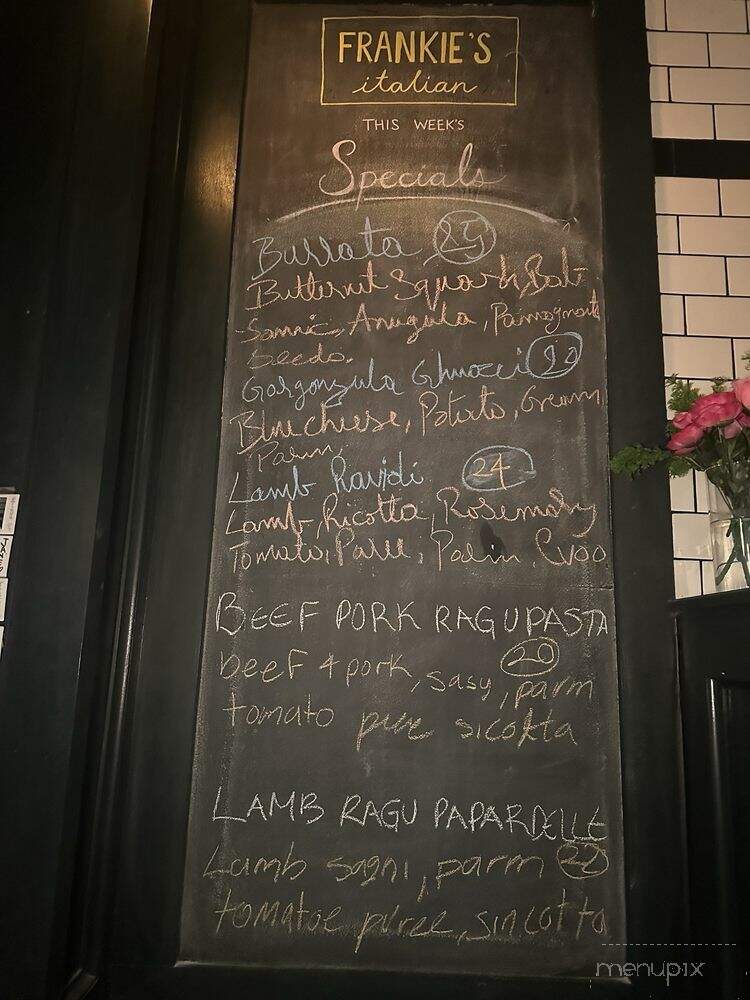 FRANKIE'S
italian
THIS WEEK'S
Specials
Burrata
Butternut Squash, Bal-
samic, Arugula,
Seeds.
Gorgonzula Ghnocci 20
Blue chiese, Potato, Cream,
Parm,
Lamb Ravioli 24
Lamb, Ricotta, Rosemary
Tomato, Puree, Parm, Evoo
BEEF PORK RAGU PASTA
beef & pork, sasy, parm 20
tomato pure sicotta
LAMB RAGU PAPARDELLE
Lamb sagni, parm 22
tomatoe puree, sincotta
menupix